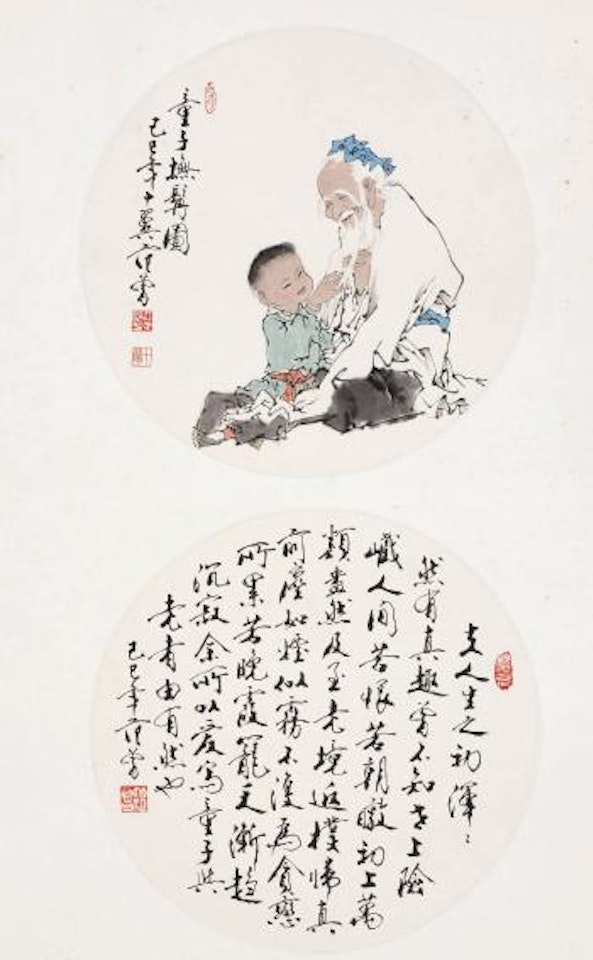 童子撫髯圖
己巳年十翼范曾
夫人生之初渾〻
然有真趣曾不知世上險
巇人间苦恨若朝暾初上萬
類盎然及至老境返樸歸真
前塵如煙似霧不復為貪戀
所累若晚霞天漸趨
沉寂余所以愛寫童子與
老者由有然也
己巳年范曾